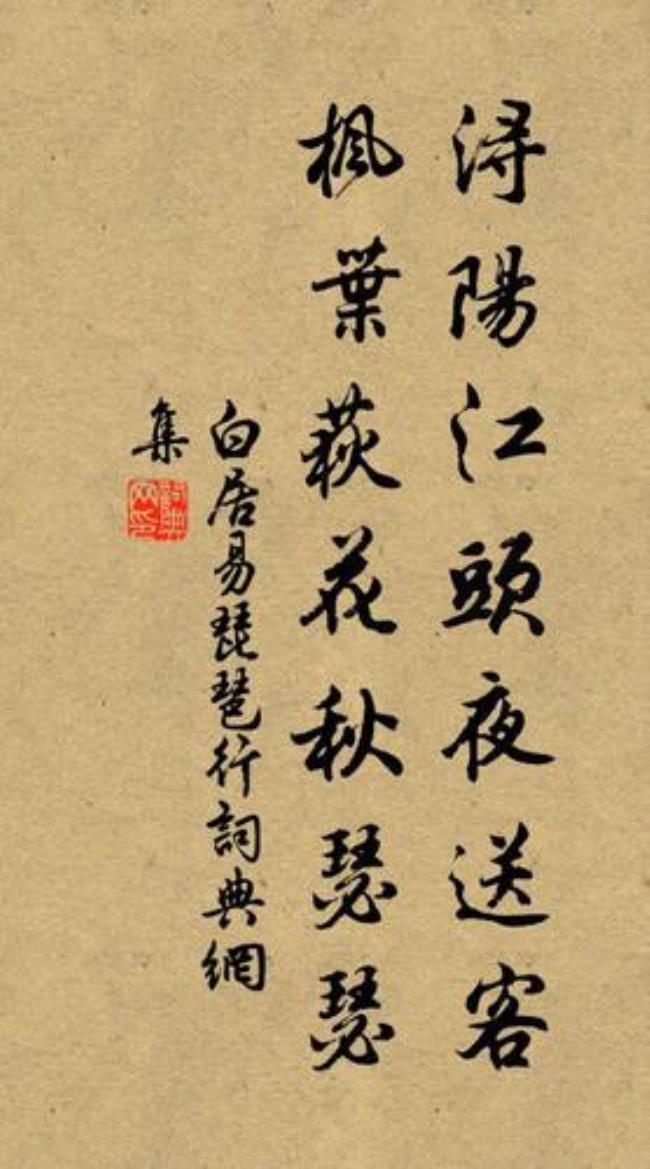 浔陽江頭夜送客
楓葉荻花秋瑟瑟
白居易琵琶行詞典網
集